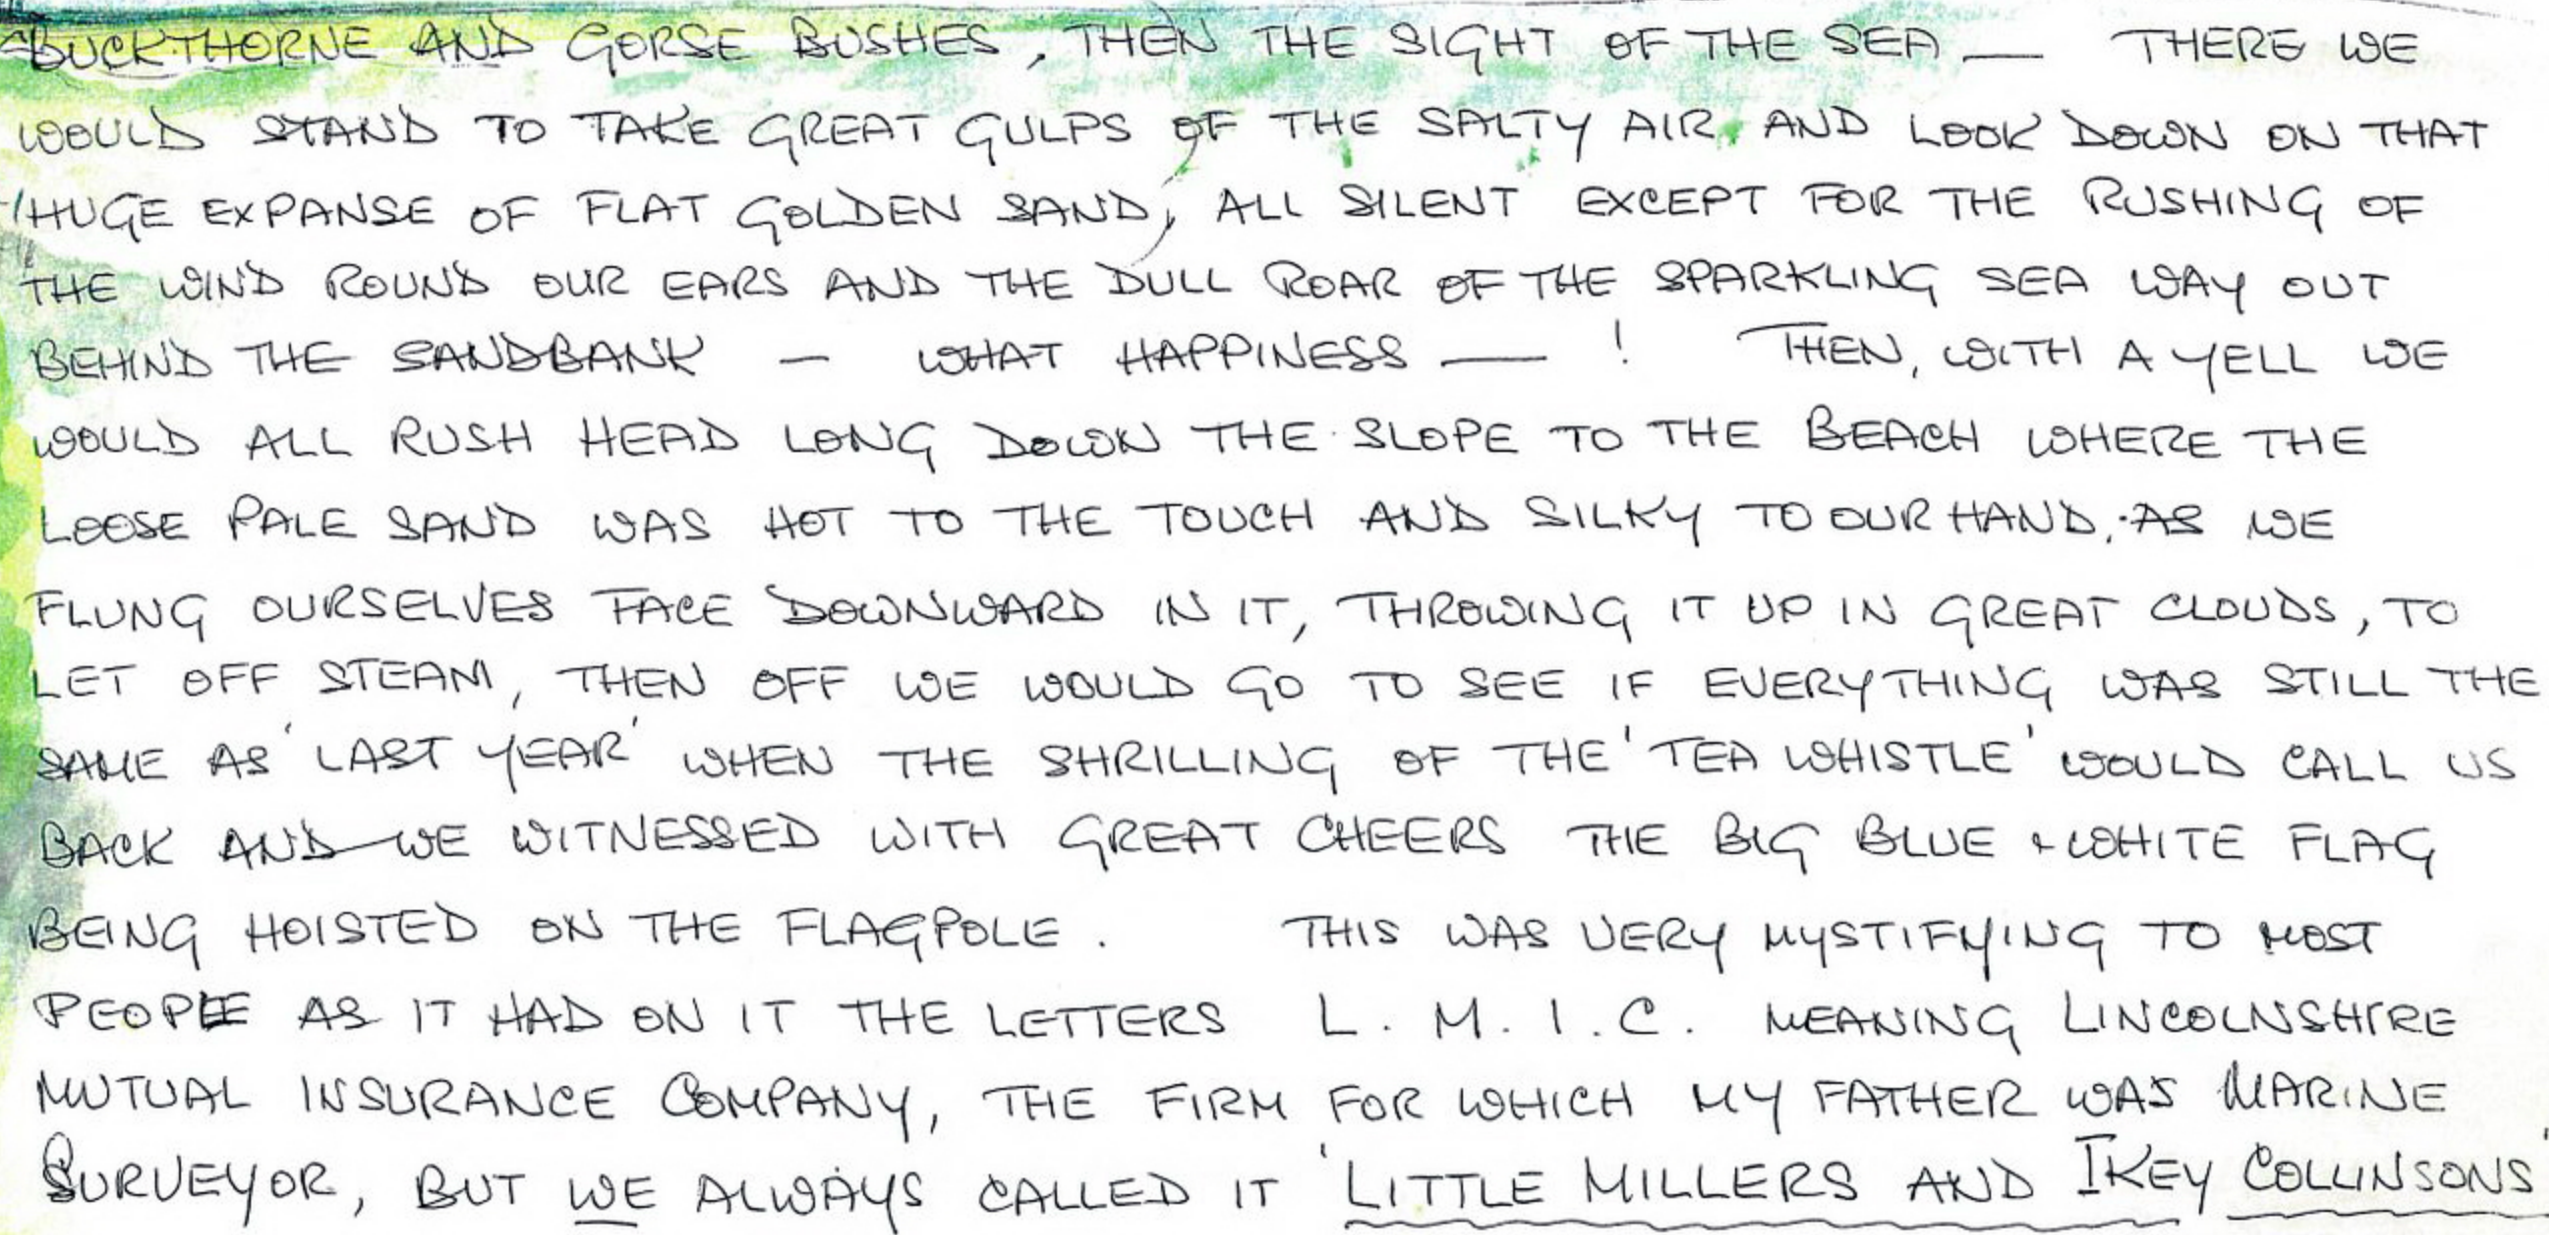 BUCKTHORNE AND GORSE BUSHES, THEN THE SIGHT OF THE SEA — THERE WE
WOULD STAND TO TAKE GREAT GULPS OF THE SALTY AIR, AND LOOK DOWN ON THAT
HUGE EXPANSE OF FLAT GOLDEN SAND, ALL SILENT EXCEPT FOR THE RUSHING OF
THE WIND ROUND OUR EARS AND THE DULL ROAR OF THE SPARKLING SEA WAY OUT
BEHIND THE SANDBANK — WHAT HAPPINESS — ! THEN, WITH A YELL WE
WOULD ALL RUSH HEAD LONG DOWN THE SLOPE TO THE BEACH WHERE THE
LOOSE PALE SAND WAS HOT TO THE TOUCH AND SILKY TO OUR HAND, AS WE
FLUNG OURSELVES FACE DOWNWARD IN IT, THROWING IT UP IN GREAT CLOUDS, TO
LET OFF STEAM, THEN OFF WE WOULD GO TO SEE IF EVERYTHING WAS STILL THE
SAME AS 'LAST YEAR' WHEN THE SHRILLING OF THE 'TEA WHISTLE' WOULD CALL US
BACK AND WE WITNESSED WITH GREAT CHEERS THE BIG BLUE & WHITE FLAG
BEING HOISTED ON THE FLAGPOLE. THIS WAS VERY MYSTIFYING TO MOST
PEOPLE AS IT HAD ON IT THE LETTERS L. M. I. C. MEANING LINCOLNSHIRE
MUTUAL INSURANCE COMPANY, THE FIRM FOR WHICH MY FATHER WAS MARINE
SURVEYOR, BUT WE ALWAYS CALLED IT 'LITTLE MILLERS AND IKEY COLLINSONS'